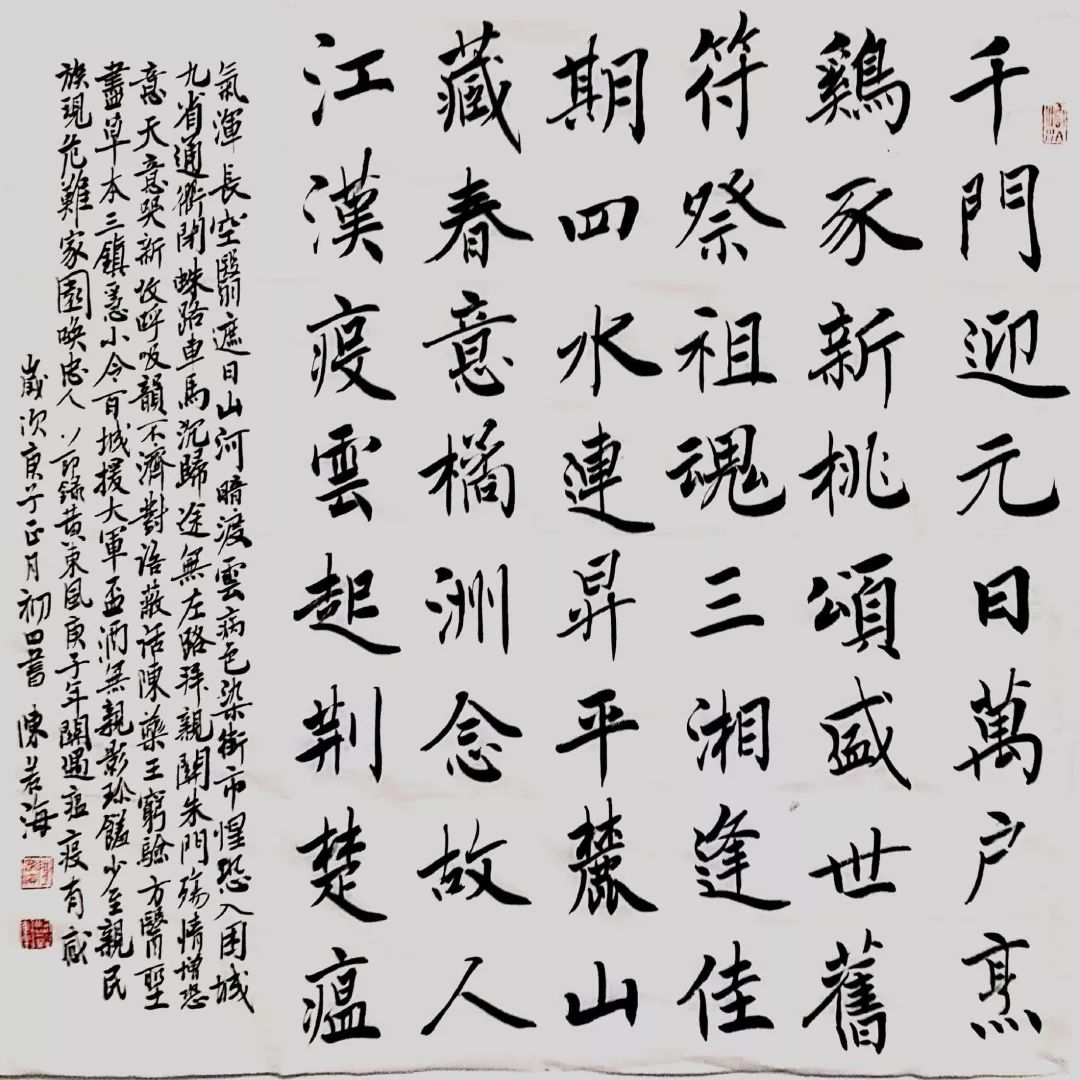 千門迎元日萬户烹
鷄豕新桃頌盛世舊
符祭祖魂三湘逢佳
期四水連昇平麓山
藏春意橘洲念故人
江漢疫雲起荆楚瘟
氣渾長空翳遮日山河暗渡雲病色染街市惶恐入困城
九省通衢閉蛛路車馬沉歸途無左路拜親關朱門殤情增恐
意天意哭新收呼吸韻不濟對語蔽話陳藥王窮驗方醫聖
盡草本三鎮小令百城援大軍盃酒無親影珍饈少至親民
族現危難家園喚忠人 錄黄東風庚子年關遇瘟疫有感
歲次庚子正月初四書 陳若海